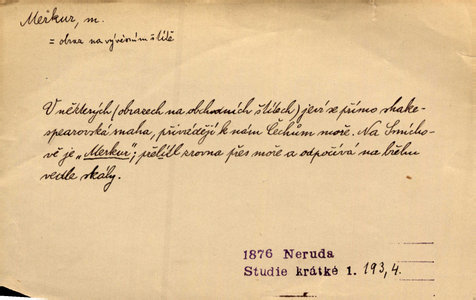 Merkur, m.
= obraz na vývěsním štítě
V některých (obrazech na obchodních štítech) jeví se přímo shake-
spearovská snaha, přivádějí k nám Čechům moře. Na Smícho-
vě je „Merkur“; přelítl zrovna přes moře a odpočívá na břehu
vedle skály.
1876 Neruda
Studie krátké 1. 193,4